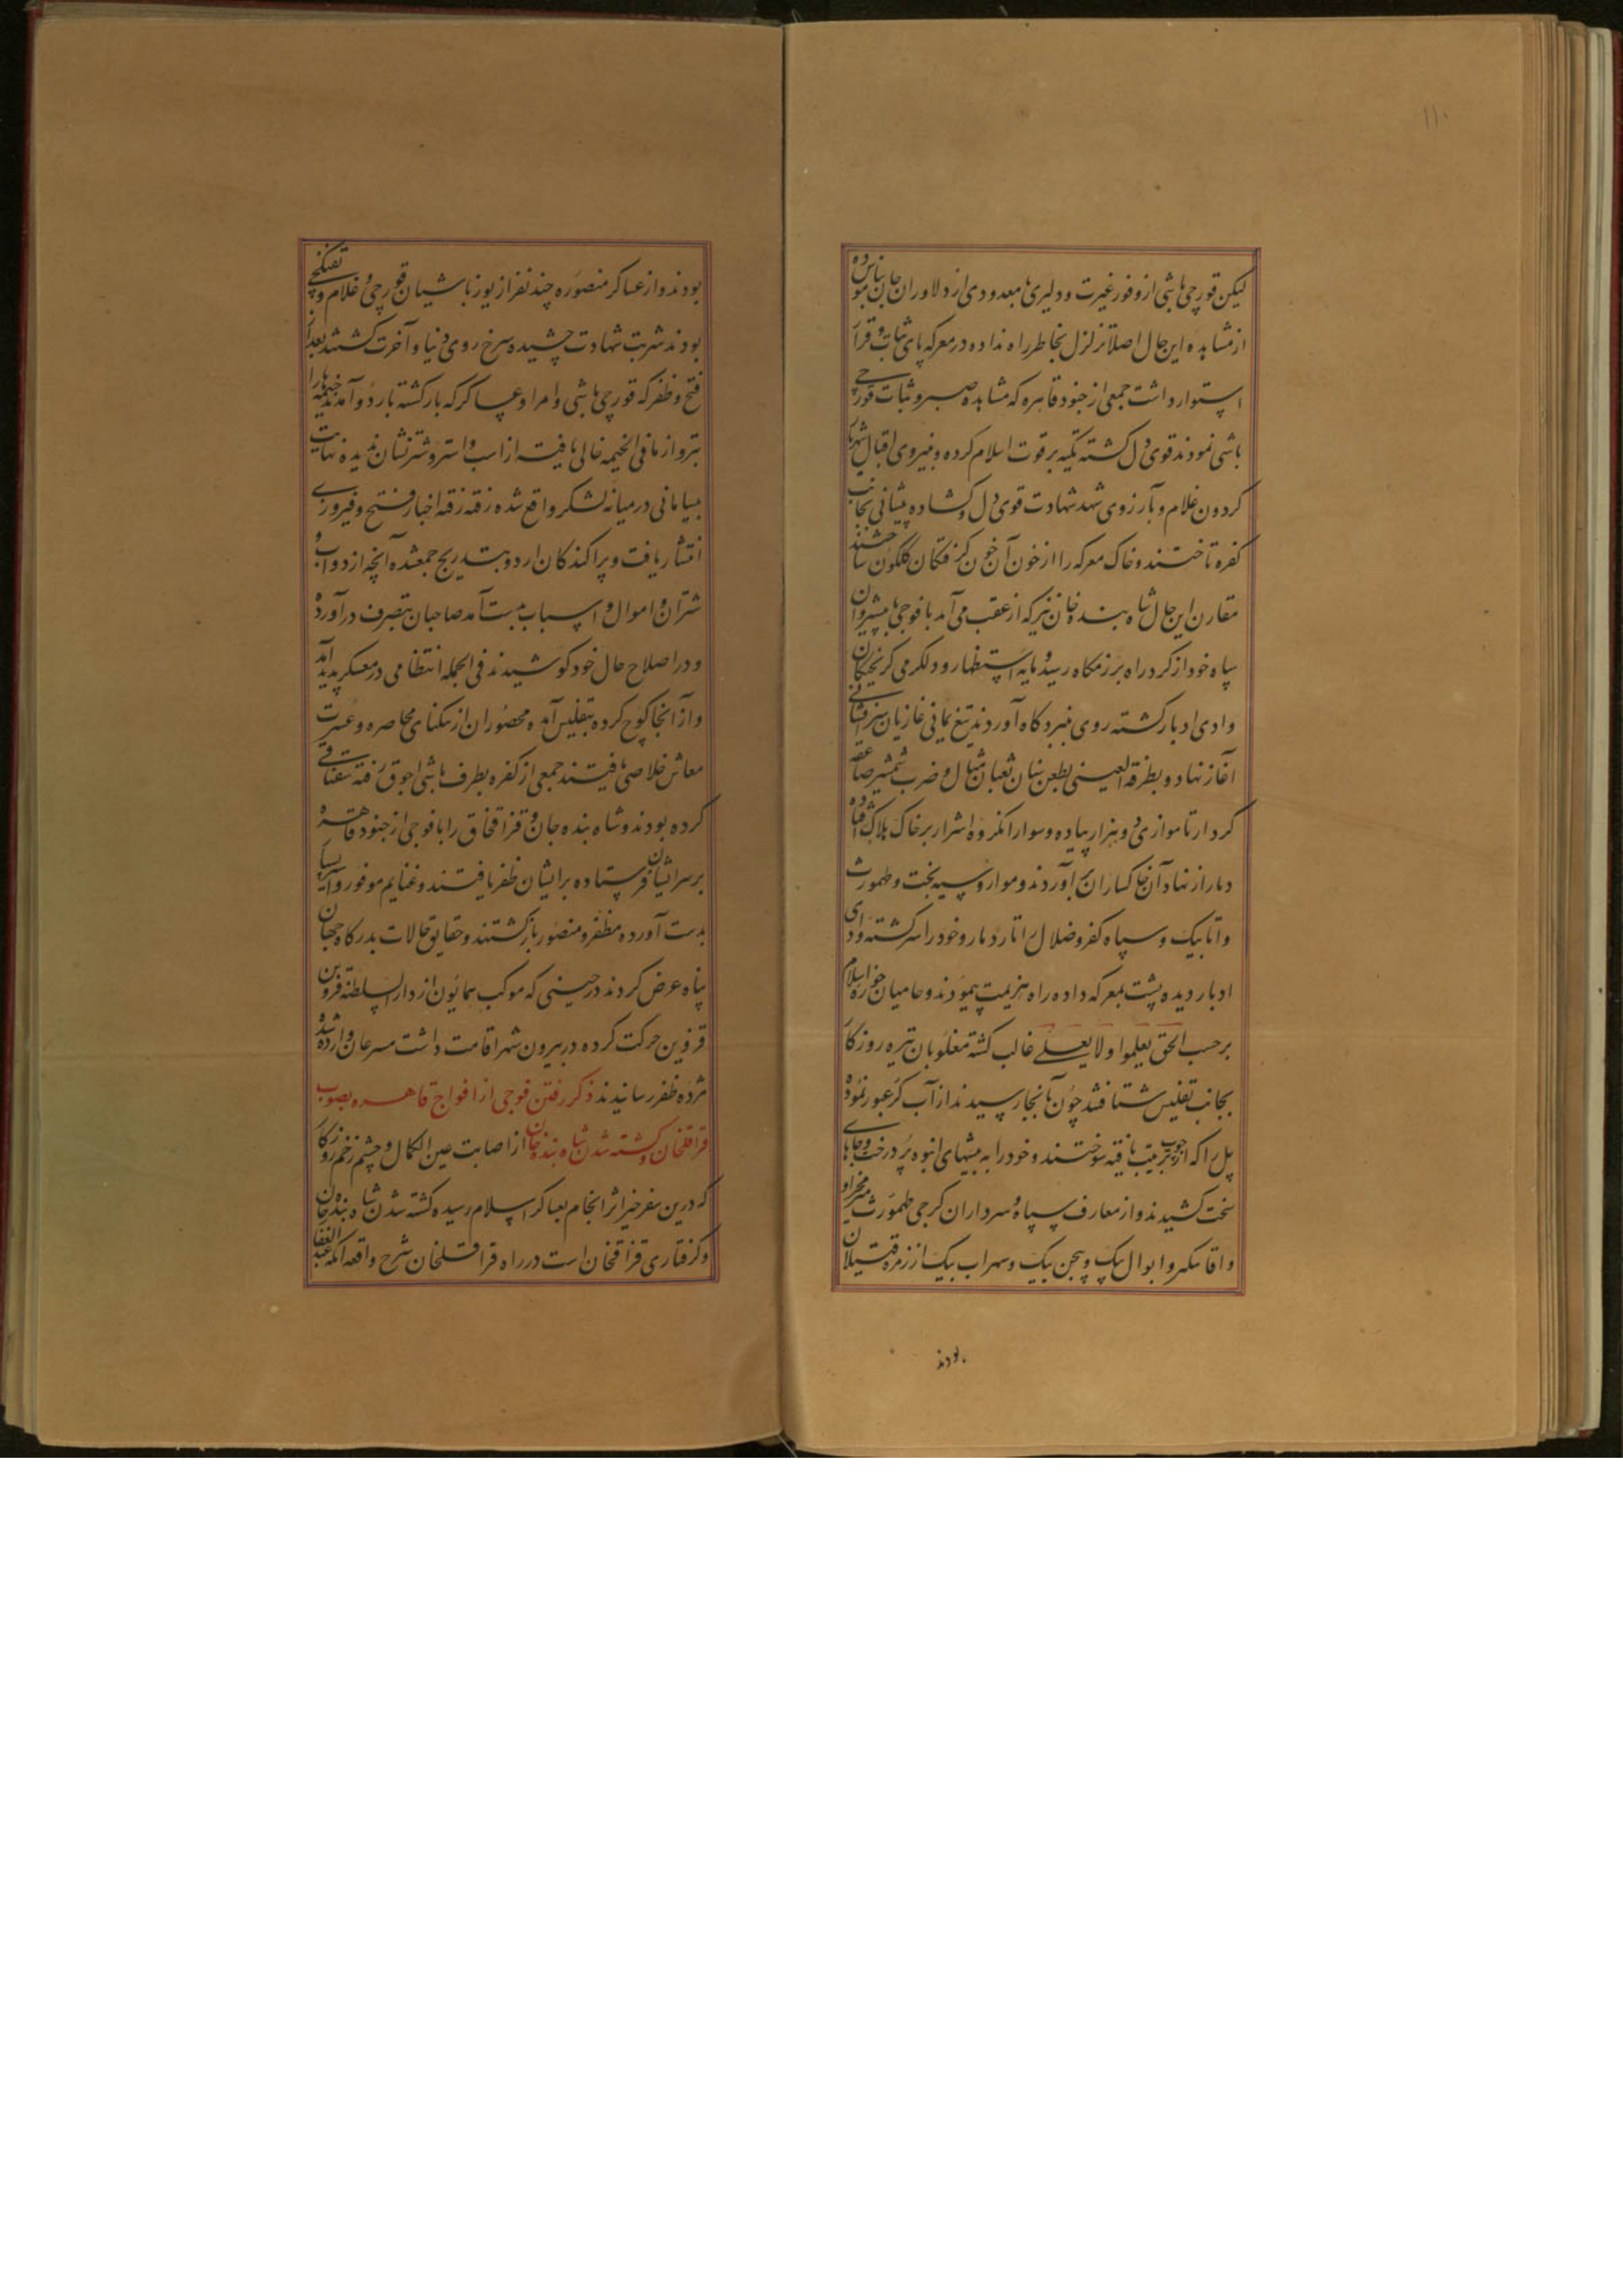 ۱۱۰
لیکن قورچی باشی از وفور غیرت و دلیری با معدودی از دلاوران جان سپار بوده
از مشاهده این حال اصلا تزلزل بخاطر راه نداده در معرکه پای ثبات و قرار
استوار داشت جمعی از جنود قاهره که مشاهده صبر و ثبات قورچی
باشی نمودند قوی دل گشته تکیه بر قوت اسلام کرده و نیروی اقبال شهریار
گردون غلام و بآرزوی شهد شهادت قوی دل و گشاده پیشانی بجانب
کفره تاختند و خاک معرکه را از خون آن خون گرفتگان گلگون ساختند
مقارن این حال شاه بنده خان نیز که از عقب می آمد با فوجی پیشروان
سپاه خود از گرد راه برزمگاه رسید و مایه استظهار و دلگرمی گریختگان
وادی ادبار گشته روی بنبردگاه آوردند تیغ یمانی غازیان سرافشانی
آغاز نهاد و بطرفة العینی بطعن سنان ثعبان مثال و ضرب شمشیر صاعقه
کردار تا موازی دو هزار پیاده و سوار از گروه اشرار بر خاک هلاک افتاده
دمار از نهاد آن خاکساران برآوردند و موارو سیه بخت و طهمورث
و اتابیک و سپاه کفر و ضلال آثار دمار و خود را سرگشته وادی
ادبار دیده پشت بمعرکه داده راه هزیمت پیمودند و حامیان حوزه اسلام
بر حسب الحق یعلوا و لا یعلی غالب گشته مغلوبان تیره روزگار
بجانب تفلیس شتافتند چون بآنجا رسیدند از آب کر عبور نموده
پل را که از چوب ترتیب یافته سوختند و خود را به بیشهای انبوه پر درخت و جاهای
سخت کشیدند و از معارف سپاه و سرداران گرجی طهمورث
و ابوال بیک و بیجن بیک و سهراب بیک از زمره قتیلان
بودند
بودند و از عساکر منصوره چند نفر از یوزباشیان قورچی و غلام و تفنگچی
بودند شربت شهادت چشیده سرخ روی دنیا و آخرت گشتند بعد از
فتح و ظفر که قورچی باشی و امرا و عساکر که بازگشته باردو آمدند خیمه ها را
بتر و از مافی الخیمه خالی یافته از اسب و استر و شتر نشان ندیده نهایت
بیسامانی در میانه لشکر واقع شده رفته رفته اخبار فتح و فیروزی
انتشار یافت و پراکندگان اردو بتدریج جمع شده آنچه از دواب و
شتران و اموال و اسباب بدست آمد صاحبان بتصرف درآورده
و در اصلاح حال خود کوشیدند فی الجمله انتظامی در معسکر پدید آمد
و از آنجا کوچ کرده بتفلیس آمده محصوران از تنگنای محاصره و عسرت
معاش خلاصی یافتند جمعی از کفره بطرف باشی اجوق رفته سقناقی
کرده بودند و شاه بنده خان و قزاقخان را با فوجی از جنود قاهره
بر سر ایشان فرستاده بر ایشان ظفر یافتند و غنایم موفور و اسیر بسیار
بدست آورده مظفر و منصور بازگشتند و حقایق حالات بدرگاه جهان
پناه عرض کردند در حینی که موکب همایون از دار السلطنه قزوین
قزوین حرکت کرده در بیرون شهر اقامت داشت مسرعان وارد شده
مژده ظفر رسانیدند ذکر رفتن فوجی از افواج قاهره بصوب
قراقلخان و کشته شدن شاه بنده خان از اصابت عین الکمال و چشم زخم روزگار
که درین سفر خیر اثر انجام بعساکر اسلام رسیده کشته شدن شاه بنده خان
و گرفتاری قزاقخان است در راه قراقلخان شرح واقعه آنکه عبد الغفار